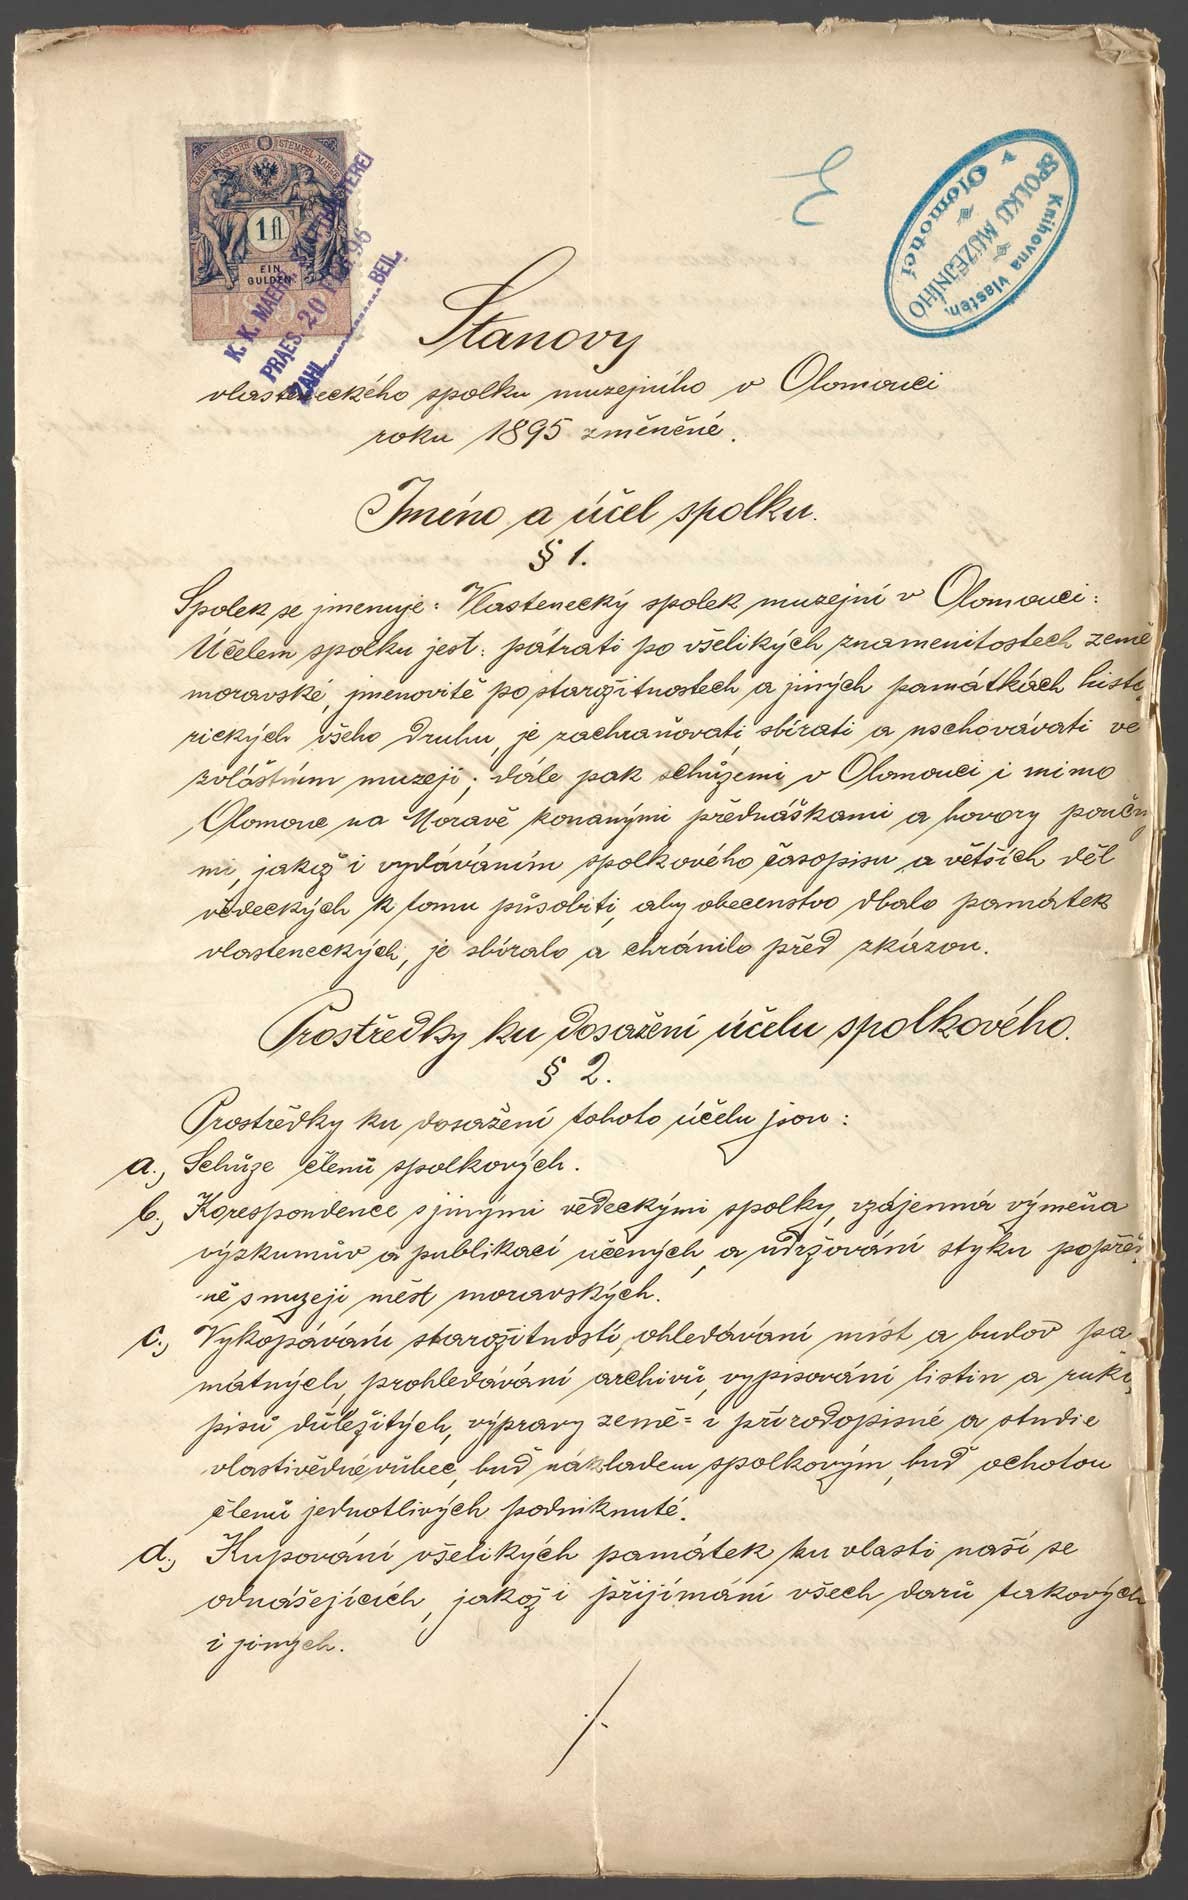 KAIS. KÖN. ÖSTERR. STEMPEL-MARKE
1 fl
EIN
GULDEN
K. K. MAEHR. STATTHALTEREI
PRAES. 20 FEB. 96
ZAHL BEIL.
Knihovna vlasten.
SPOLKU MUZEJNÍHO
v Olomouci
Stanovy
vlasteneckého spolku muzejního v Olomouci
roku 1895 změněné.
Jméno a účel spolku.
§ 1.
Spolek se jmenuje: Vlastenecký spolek muzejní v Olomouci:
Účelem spolku jest: pátrati po všelikých znamenitostech země
moravské, jmenovitě po starožitnostech a jiných památkách histo-
rických všeho druhu, je zachraňovati, sbírati a uschovávati ve
zvláštním muzeji; dále pak schůzemi v Olomouci i mimo
Olomouc na Moravě konanými přednáškami a hovory poučný
mi, jakož i vydáváním spolkového časopisu a větších děl
vědeckých k tomu působiti, aby obecenstvo dbalo památek
vlasteneckých, je sbíralo a chránilo před zkázou.
Prostředky ku dosažení účelu spolkového.
§ 2.
Prostředky ku dosažení tohoto účelu jsou:
a., Schůze členů spolkových.
b., Korespondence s jinými vědeckými spolky, vzájemná výměna
výzkumův a publikací učených, a udržování styku popřed-
ně s muzeji měst moravských.
c., Vykopávání starožitností, ohledávání míst a budov pa-
mátných, prohledávání archivů, vypisování listin a ruko-
pisů důležitých, výpravy země= i přírodopisné a studie
vlastivědné vůbec, buď nákladem spolkovým, buď ochotou
členů jednotlivých podniknuté.
d., Kupování všelikých památek ku vlasti naší se
odnášejících, jakož i přijímání všech darů takových
i jiných.
./.